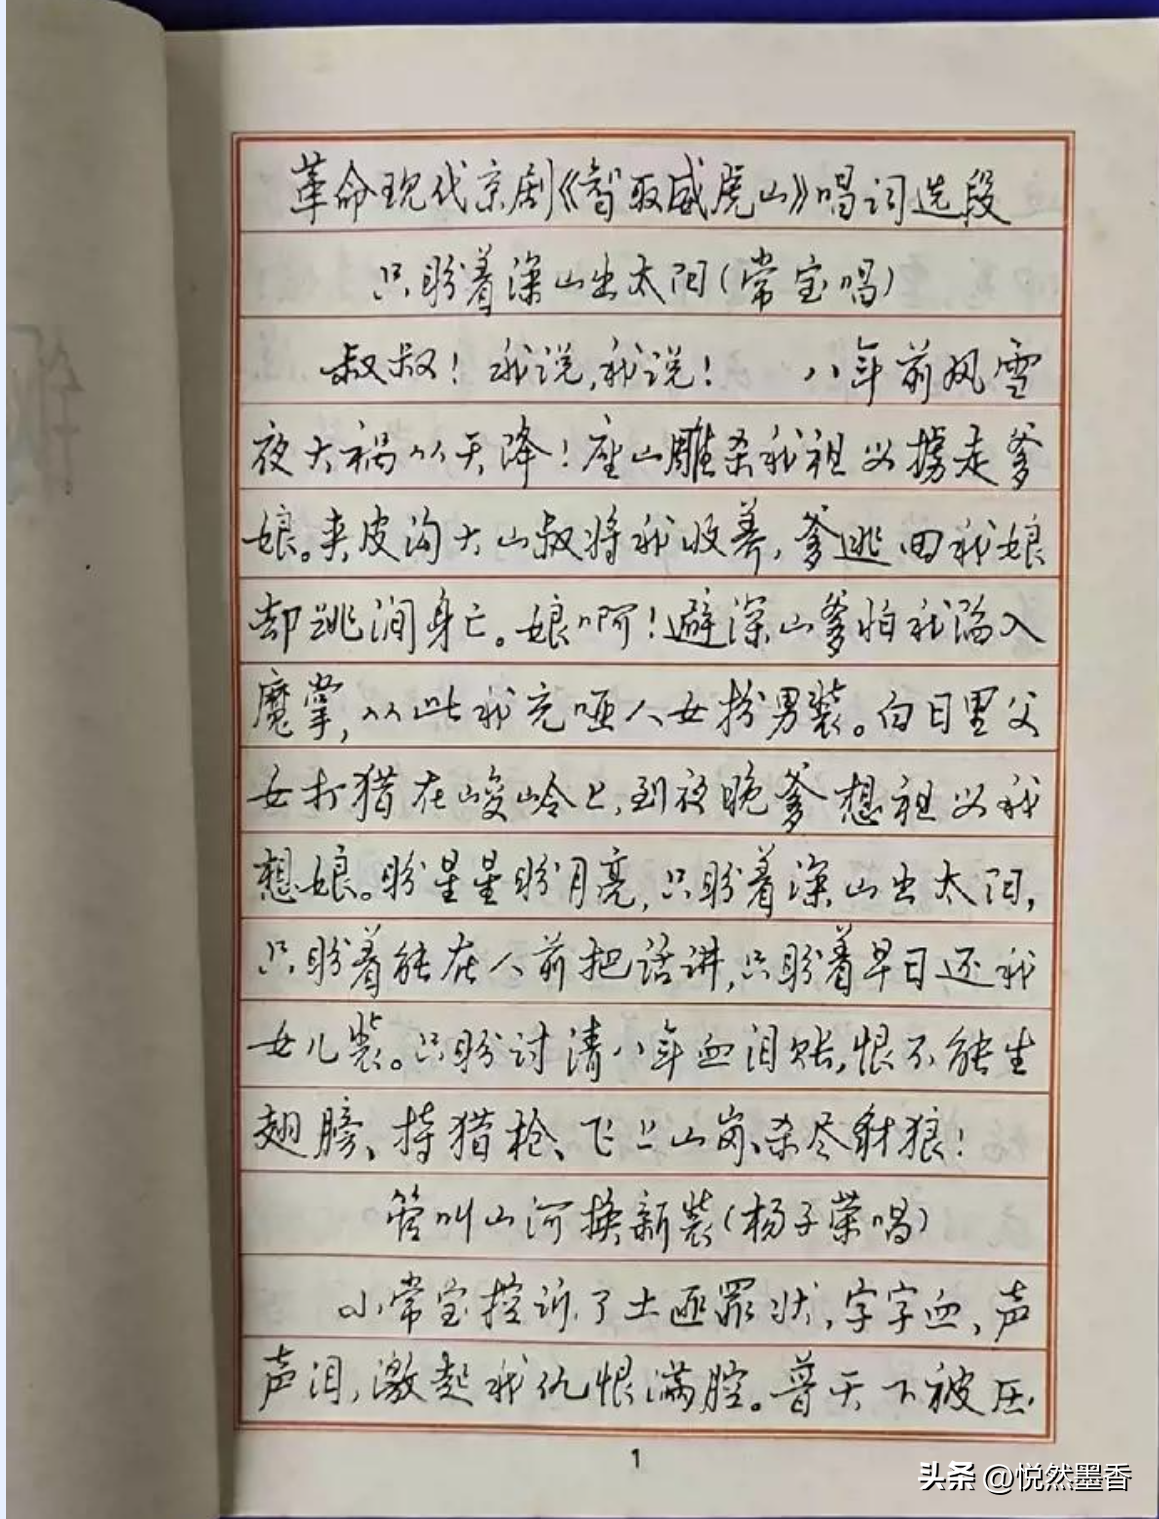 革命现代京剧《智取威虎山》唱词选段
只盼着深山出太阳(常宝唱)
叔叔！我说,我说！ 八年前风雪
夜大祸从天降！座山雕杀我祖母掳走爹
娘。夹皮沟大山叔将我收养,爹逃回我娘
却跳涧身亡。娘啊！避深山爹怕我陷入
魔掌,从此我充哑人女扮男装。白日里父
女打猎在峻岭上,到夜晚爹想祖母我
想娘。盼星星盼月亮,只盼着深山出太阳,
只盼着能在人前把话讲,只盼着早日还我
女儿装。只盼讨清八年血泪账,恨不能生
翅膀、持猎枪、飞上山岗、杀尽豺狼！
管叫山河换新装(杨子荣唱)
小常宝控诉了土匪罪状,字字血,声
声泪,激起我仇恨满腔。普天下被压
1
头条 @悦然墨香